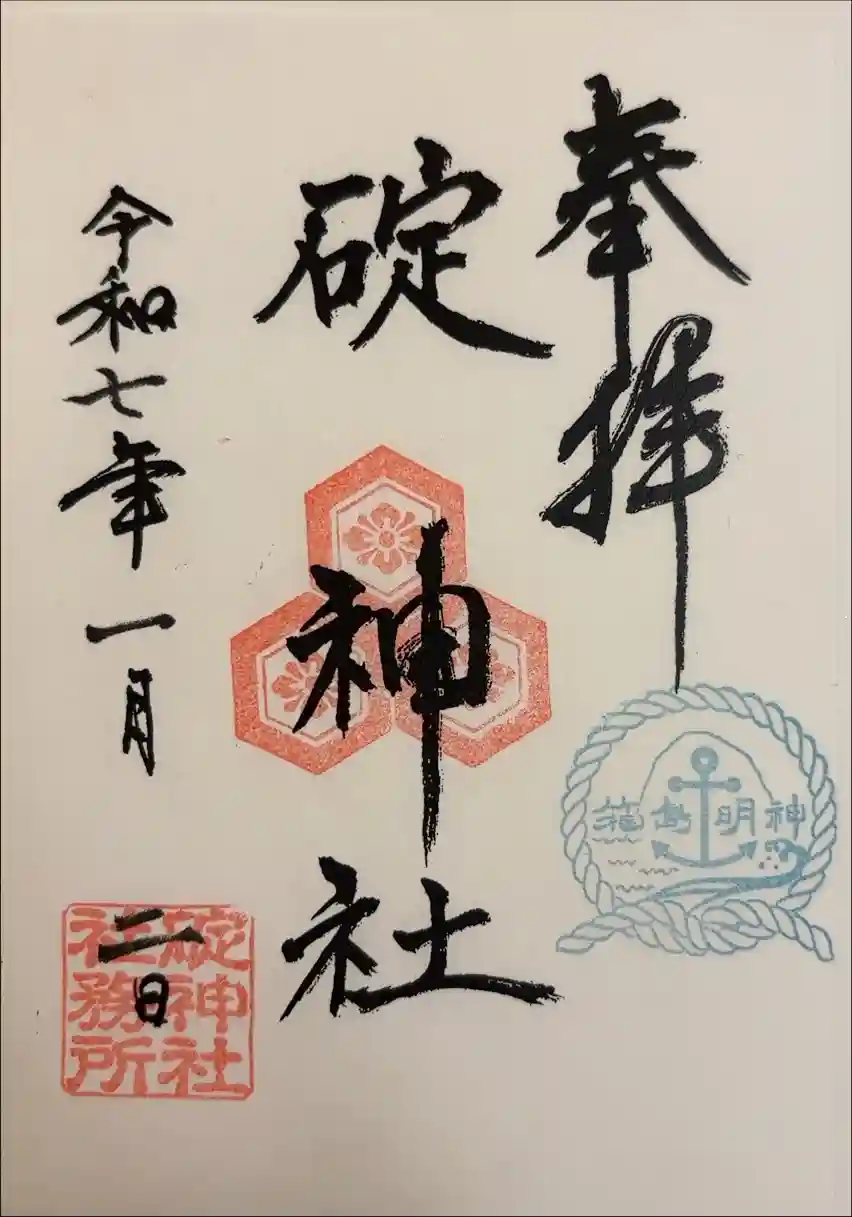 奉拝
神明島箱
碇神社
令和七年一月二日
碇神社
社務所